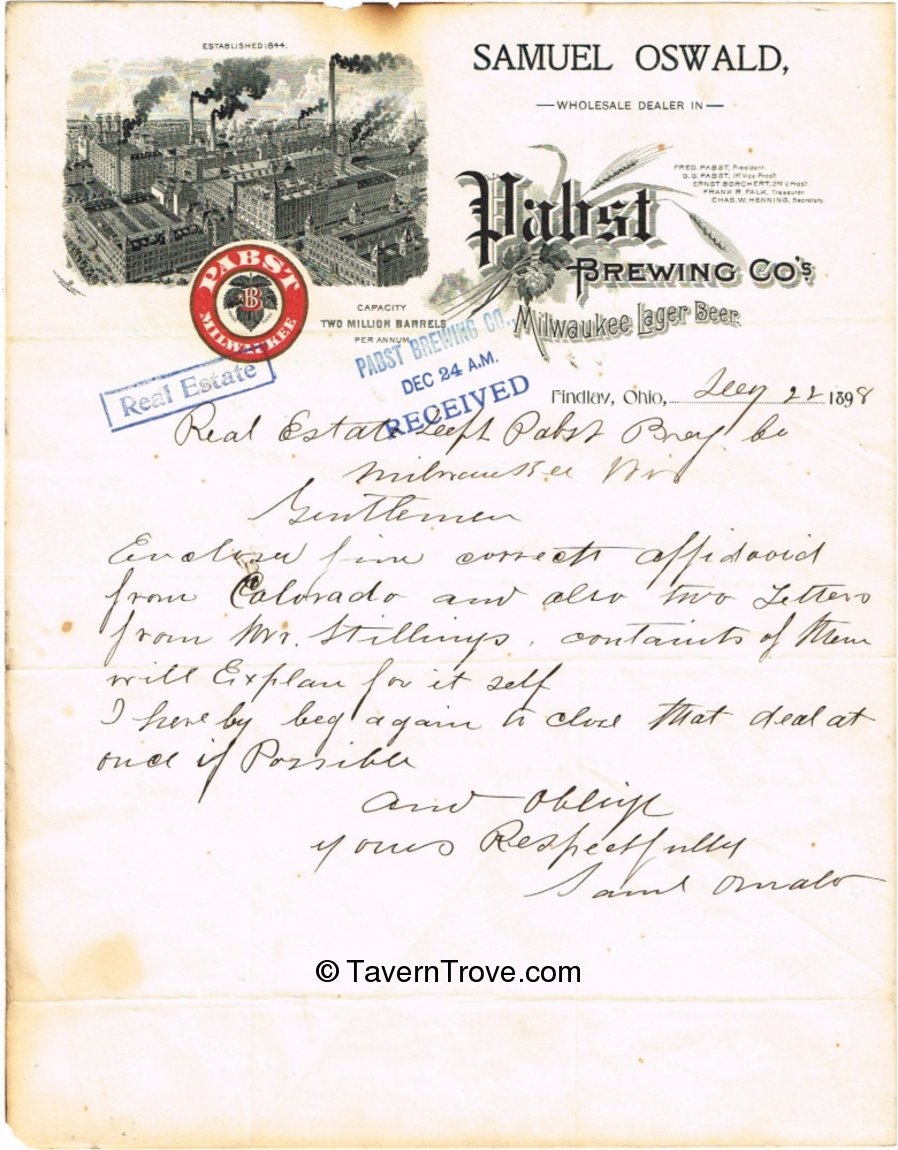 ESTABLISHED 1844.
SAMUEL OSWALD,
WHOLESALE DEALER IN
Pabst
BREWING CO'S
Milwaukee Lager Beer.
FRED. PABST, President.
G.G. PABST, 1st Vice Prest.
ERNST BORCHERT, 2nd V. Prest.
FRANK R. FALK, Treasurer.
CHAS. W. HENNING, Secretary.
PABST
B
MILWAUKEE
CAPACITY
TWO MILLION BARRELS
PER ANNUM
Real Estate
PABST BREWING CO.,
DEC 24 A.M.
RECEIVED
Findlay, Ohio, 22 1898
Real Estate Dept Pabst Brey. Co
Milwaukee Wis
Gentlemen
Enclosed fine correct affidavid
from Colorado and also two Letters
from Mr. Stillings, containts of them
will Explan for it self
I here by beg again to close that deal at
once if Possible
and Oblige
yours Respectfully
Saml Oswald
© TavernTrove.com